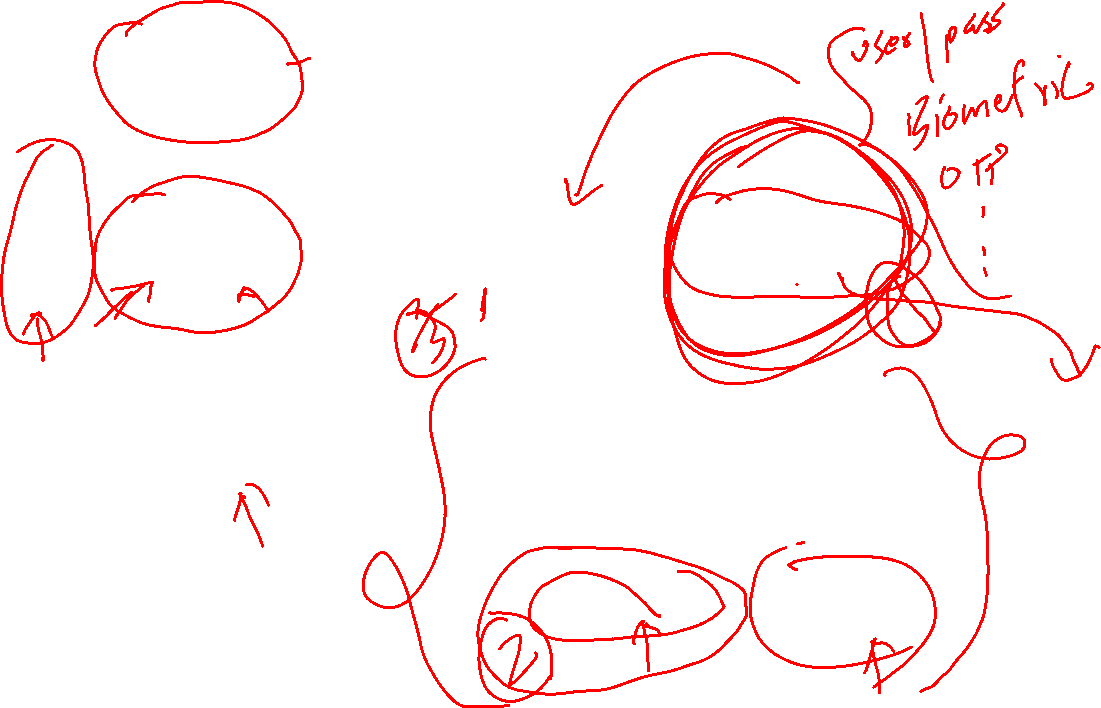 User/pass
Biometric
OTP
2